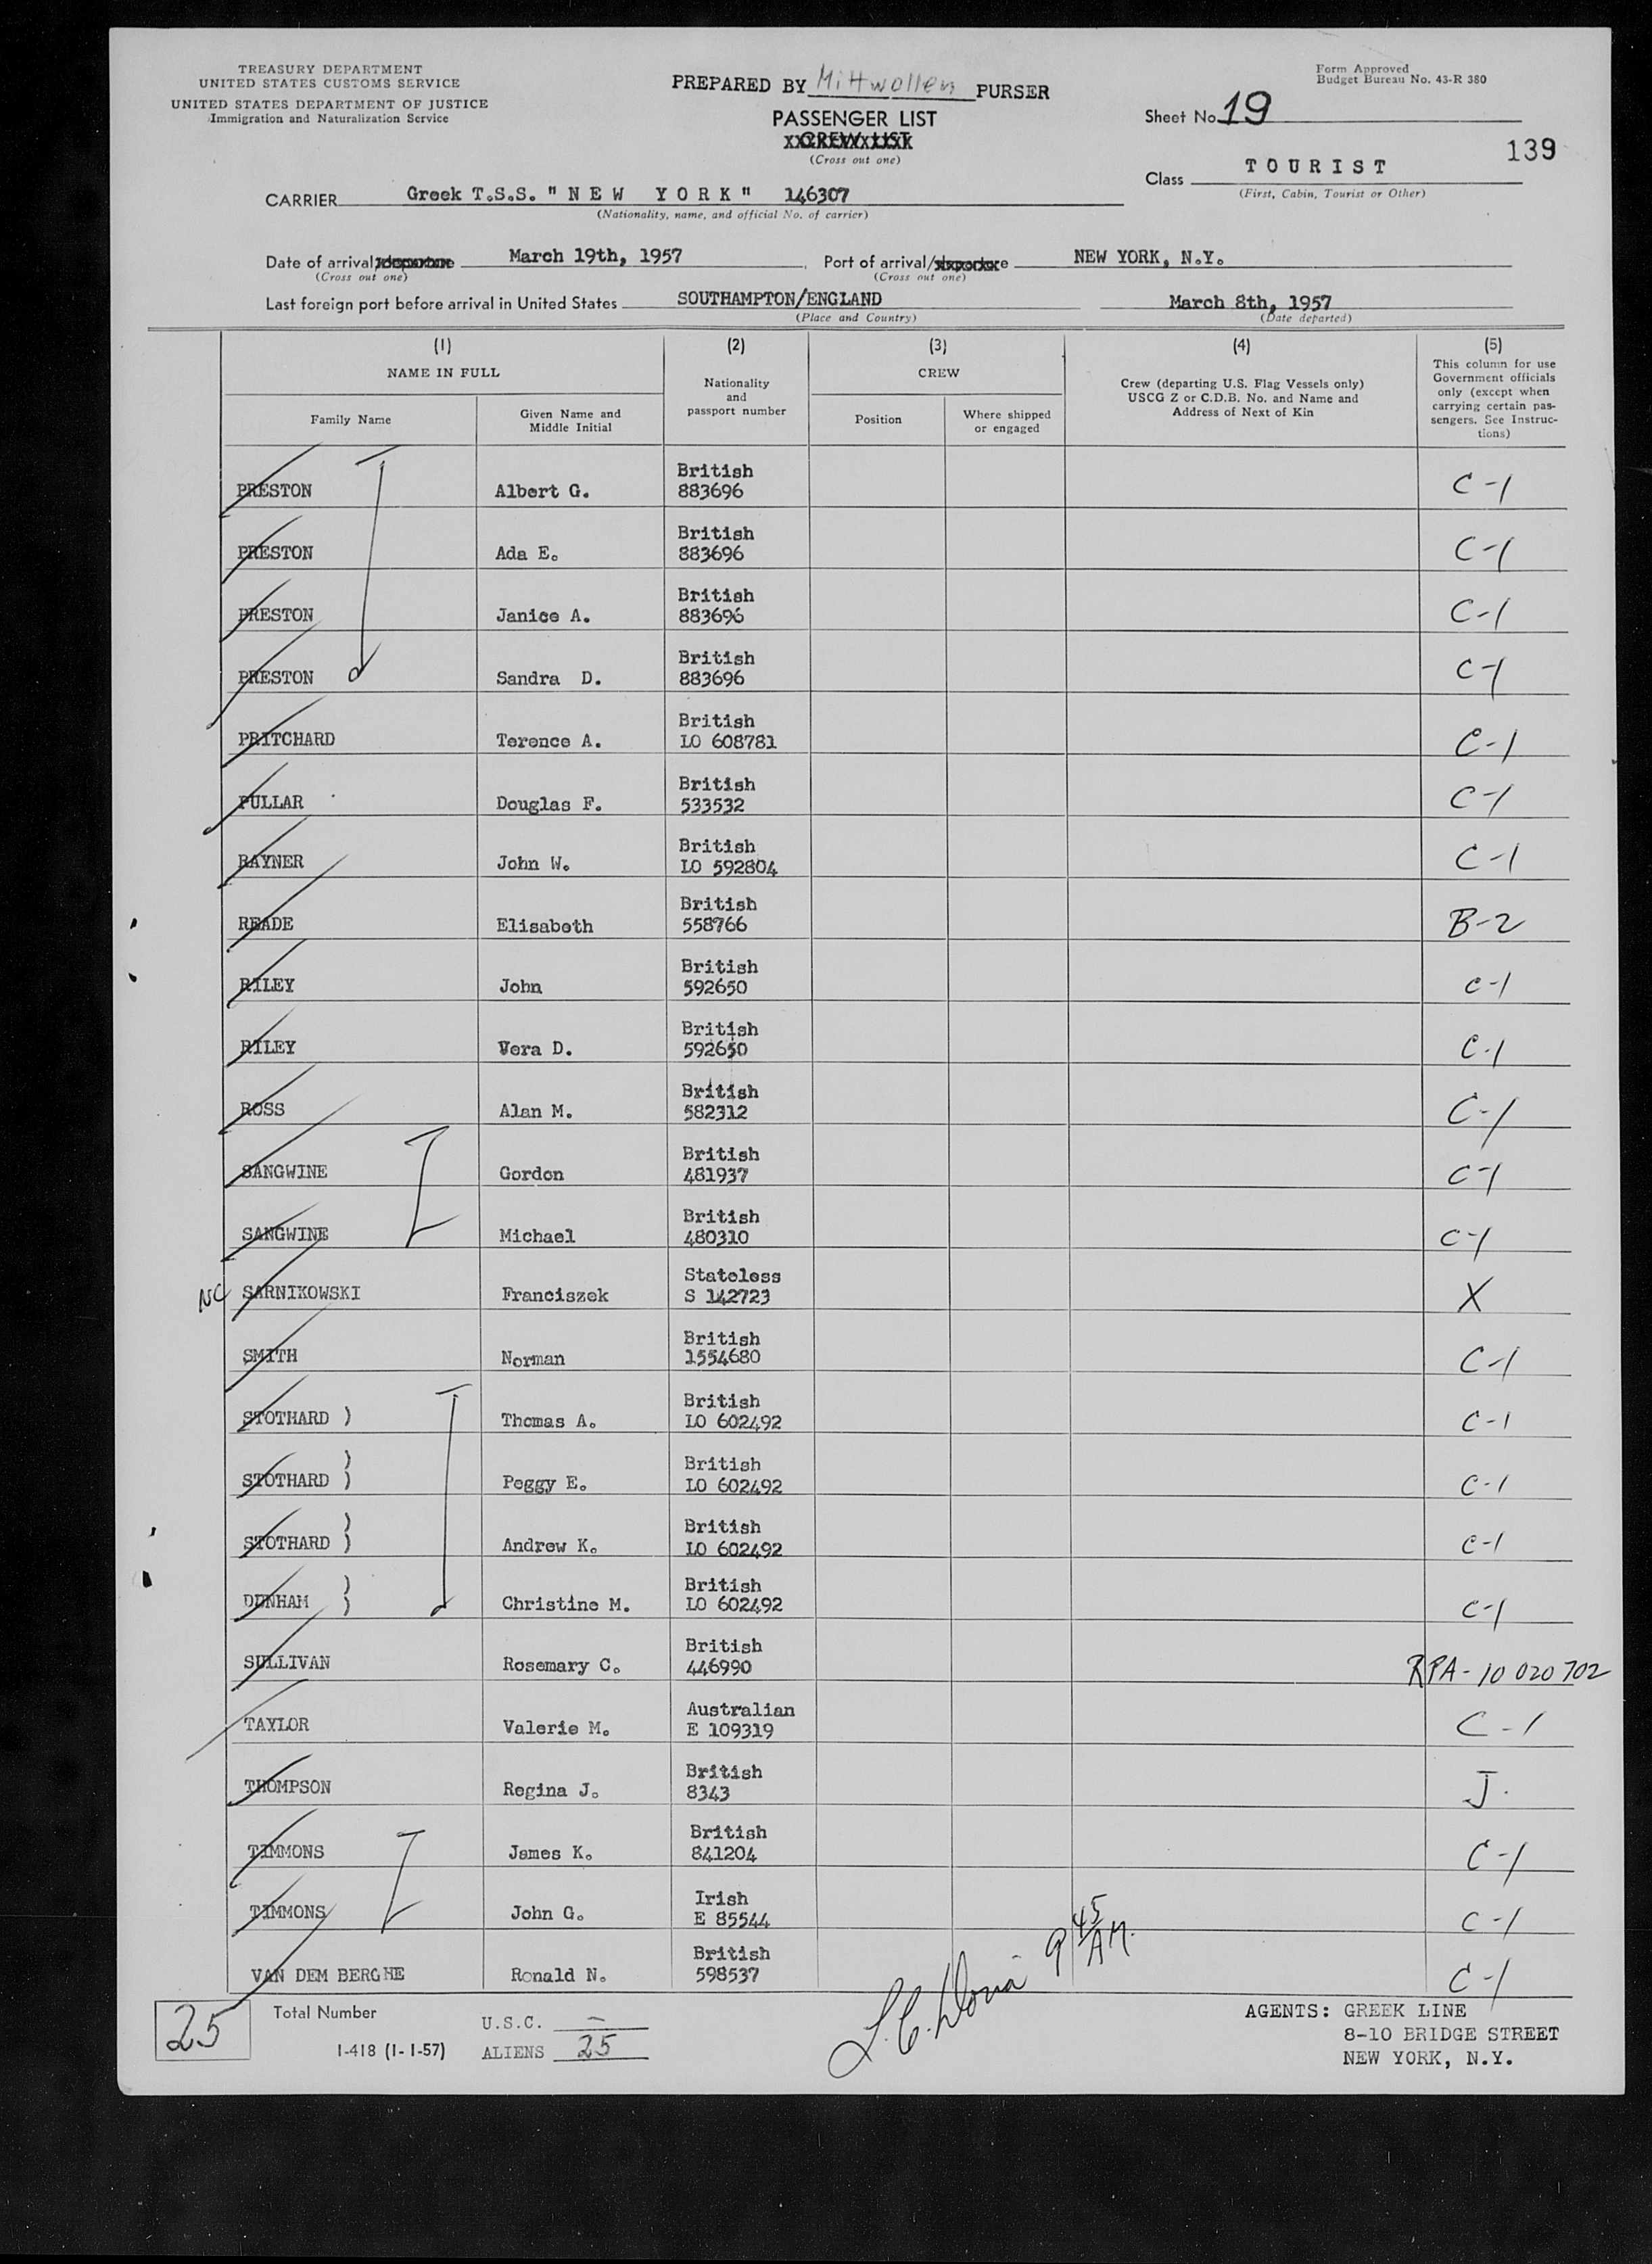 TREASURY DEPARTMENT
UNITED STATES CUSTOMS SERVICE
UNITED STATES DEPARTMENT OF JUSTICE
Immigration and Naturalization Service
PREPARED BY Mittwollen PURSER
PASSENGER LIST
CREW LIST
(Cross out one)
Form Approved
Budget Bureau No. 43-R 380
Sheet No. 19
139
Class TOURIST
(First, Cabin, Tourist or Other)
CARRIER Greek T.S.S. "NEW YORK" 146307
(Nationality, name, and official No. of carrier)
Date of arrival/departure March 19th, 1957 Port of arrival/departure NEW YORK, N.Y.
(Cross out one) (Cross out one)
Last foreign port before arrival in United States SOUTHAMPTON/ENGLAND March 8th, 1957
(Place and Country) (Date departed)
(1) (2) (3) (4) (5)
NAME IN FULL
Family Name
Given Name and Middle Initial
Nationality and passport number
CREW
Position
Where shipped or engaged
Crew (departing U.S. Flag Vessels only)
USCG Z or C.D.B. No. and Name and
Address of Next of Kin
This column for use
Government officials
only (except when
carrying certain pas-
sengers. See Instruc-
tions)
PRESTON Albert G. British 883696 C-1
PRESTON Ada E. British 883696 C-1
PRESTON Janice A. British 883696 C-1
PRESTON Sandra D. British 883696 C-1
PRITCHARD Terence A. British LO 608781 C-1
PULLAR Douglas F. British 533532 C-1
RAYNER John W. British LO 592804 C-1
READE Elisabeth British 558766 B-2
RILEY John British 592650 C-1
RILEY Vera D. British 592650 C-1
ROSS Alan M. British 582312 C-1
SANGWINE Gordon British 481937 C-1
SANGWINE Michael British 480310 C-1
NC SARNIKOWSKI Franciszek Stateless S 142723 X
SMITH Norman British 1554680 C-1
STOTHARD ) Thomas A. British LO 602492 C-1
STOTHARD ) Peggy E. British LO 602492 C-1
STOTHARD ) Andrew K. British LO 602492 C-1
DUNHAM ) Christine M. British LO 602492 C-1
SULLIVAN Rosemary C. British 446990 RPA-10 020 702
TAYLOR Valerie M. Australian E 109319 C-1
THOMPSON Regina J. British 8343 J.
TIMMONS James K. British 841204 C-1
TIMMONS John G. Irish E 85544 C-1
VAN DEM BERGHE Ronald N. British 598537 C-1
9 45/AM.
25 Total Number
I-418 (1-1-57)
U.S.C. —
ALIENS 25
AGENTS: GREEK LINE
8-10 BRIDGE STREET
NEW YORK, N.Y.